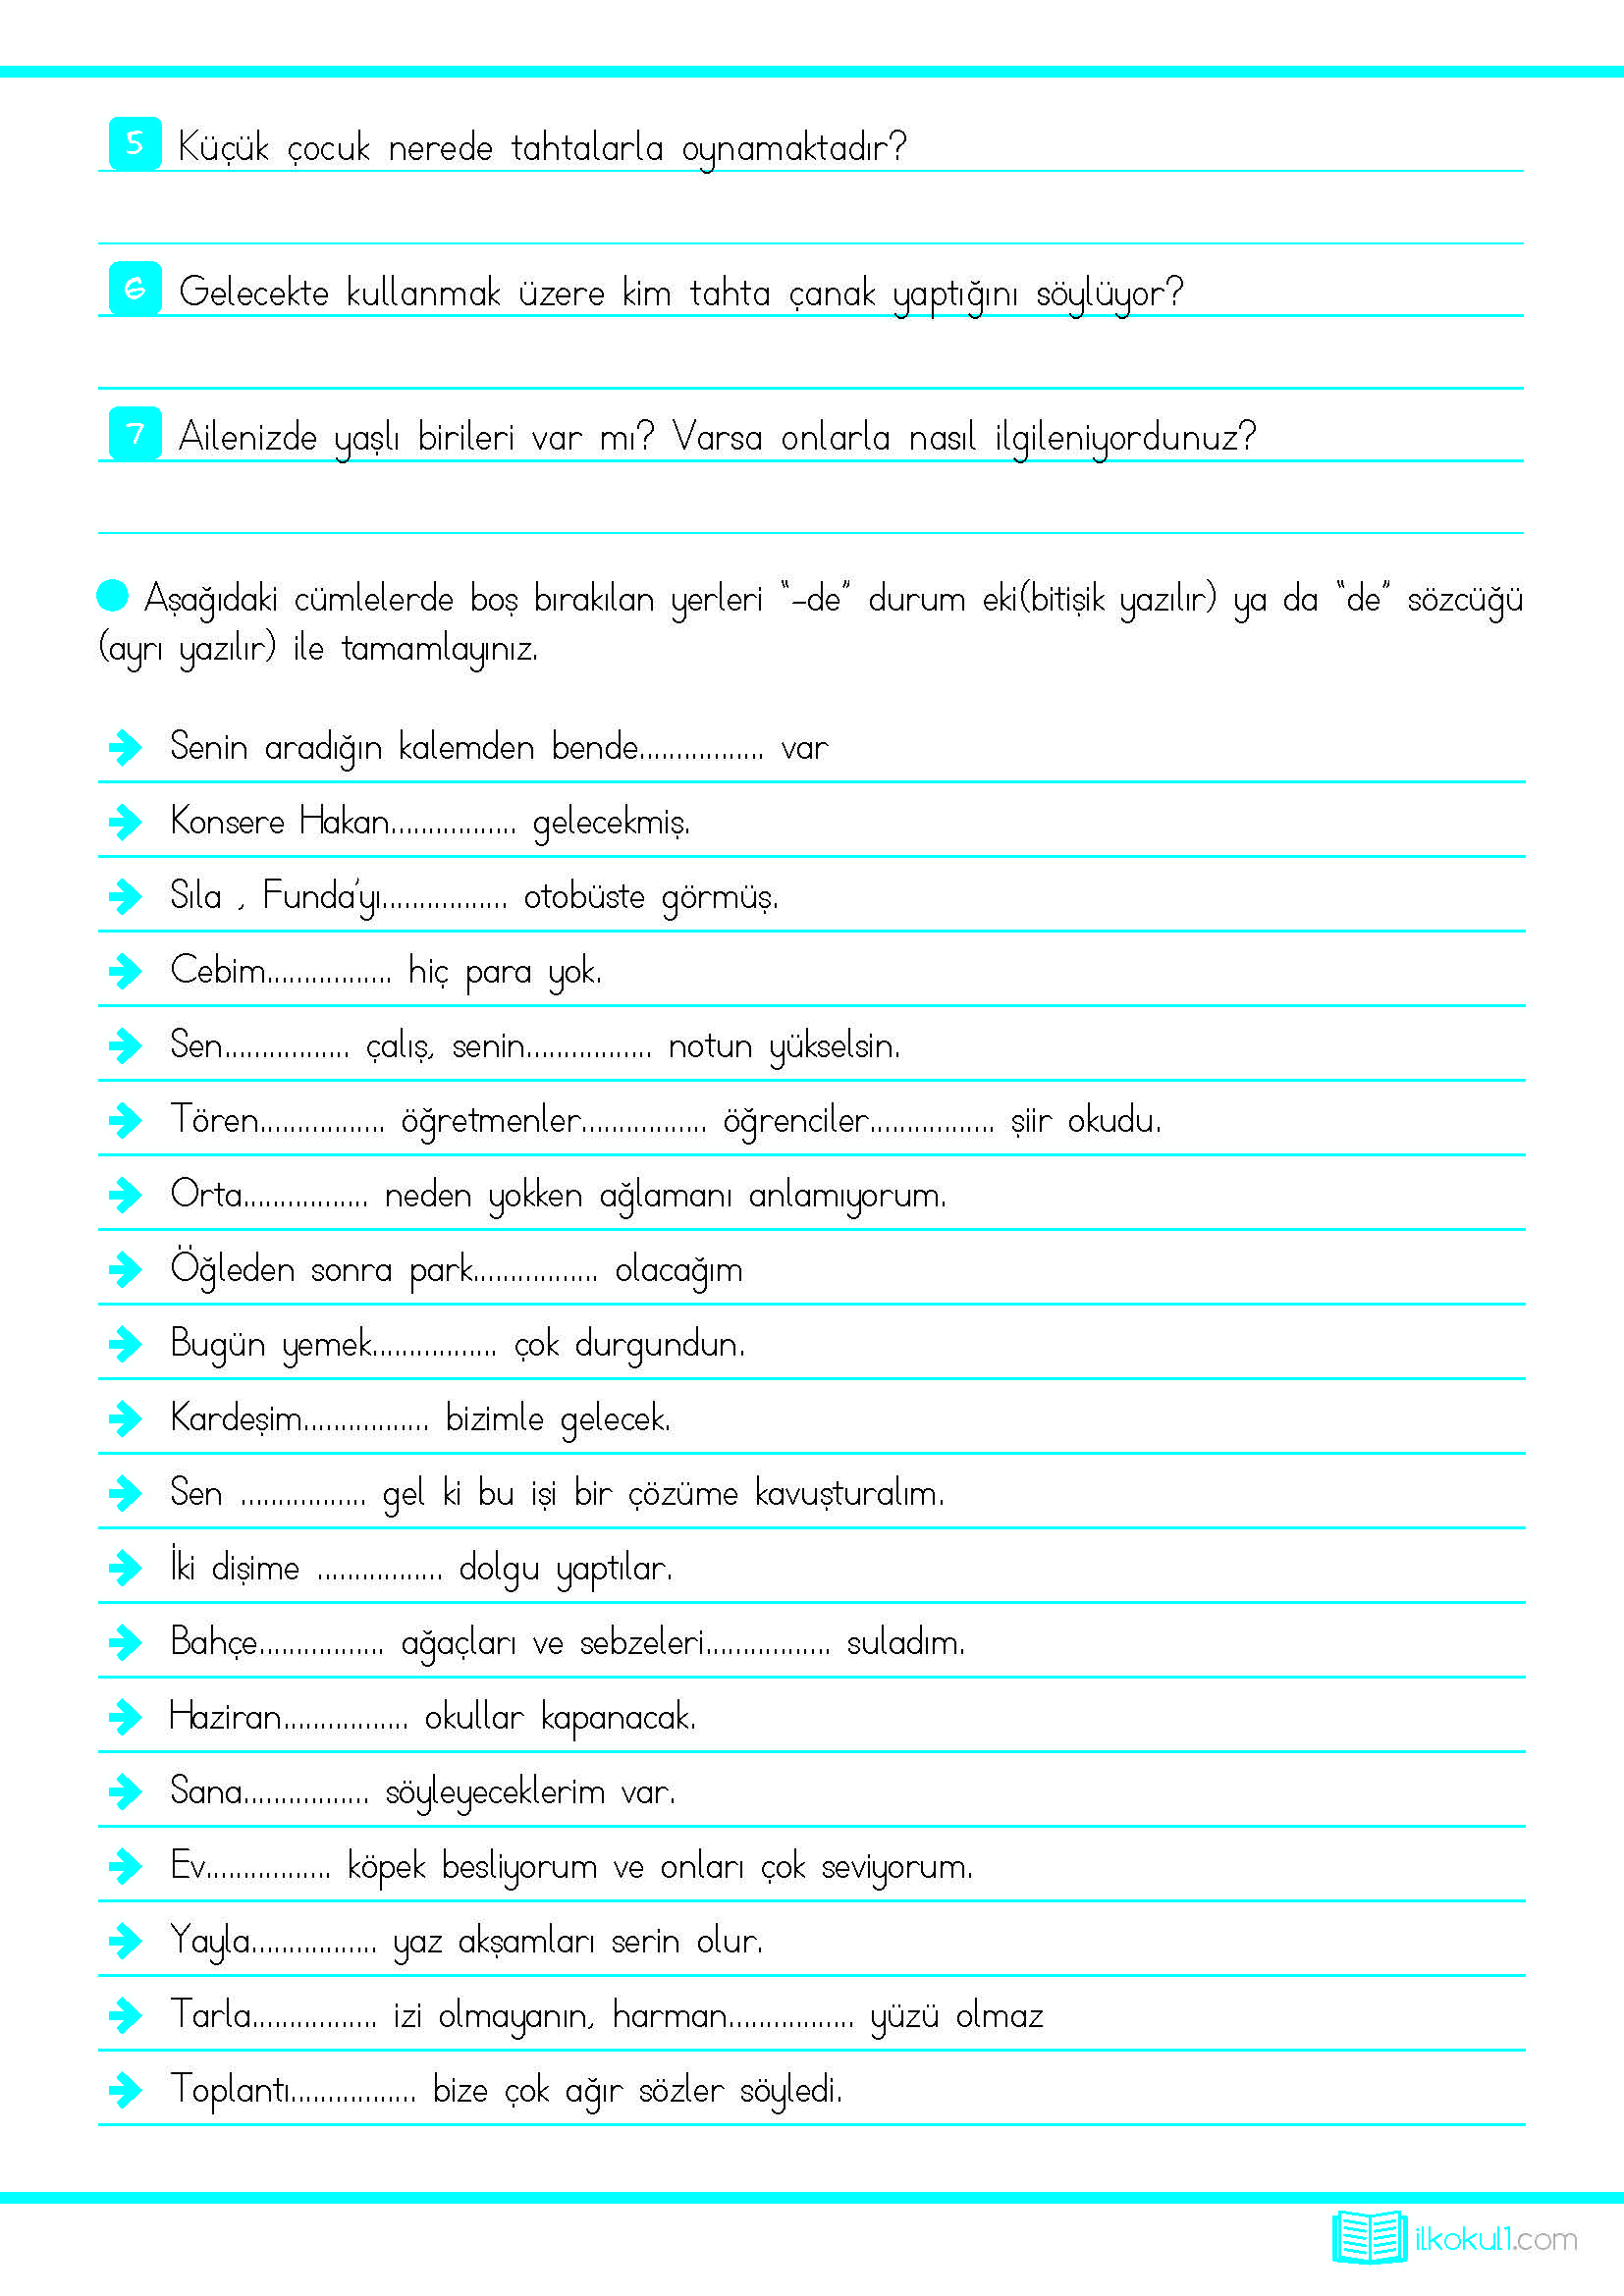 5 Küçük çocuk nerede tahtalarla oynamaktadır?
6 Gelecekte kullanmak üzere kim tahta çanak yaptığını söylüyor?
7 Ailenizde yaşlı birileri var mı? Varsa onlarla nasıl ilgileniyordunuz?
Aşağıdaki cümlelerde boş bırakılan yerleri “-de” durum eki(bitişik yazılır) ya da “de” sözcüğü
(ayrı yazılır) ile tamamlayınız.
Senin aradığın kalemden bende................. var
Konsere Hakan................. gelecekmiş.
Sıla , Funda’yı................. otobüste görmüş.
Cebim................. hiç para yok.
Sen................. çalış, senin................. notun yükselsin.
Tören................. öğretmenler................. öğrenciler................. şiir okudu.
Orta................. neden yokken ağlamanı anlamıyorum.
Öğleden sonra park................. olacağım
Bugün yemek................. çok durgundun.
Kardeşim................. bizimle gelecek.
Sen ................. gel ki bu işi bir çözüme kavuşturalım.
İki dişime ................. dolgu yaptılar.
Bahçe................. ağaçları ve sebzeleri................. suladım.
Haziran................. okullar kapanacak.
Sana................. söyleyeceklerim var.
Ev................. köpek besliyorum ve onları çok seviyorum.
Yayla................. yaz akşamları serin olur.
Tarla................. izi olmayanın, harman................. yüzü olmaz
Toplantı................. bize çok ağır sözler söyledi.
ilkokul1.com